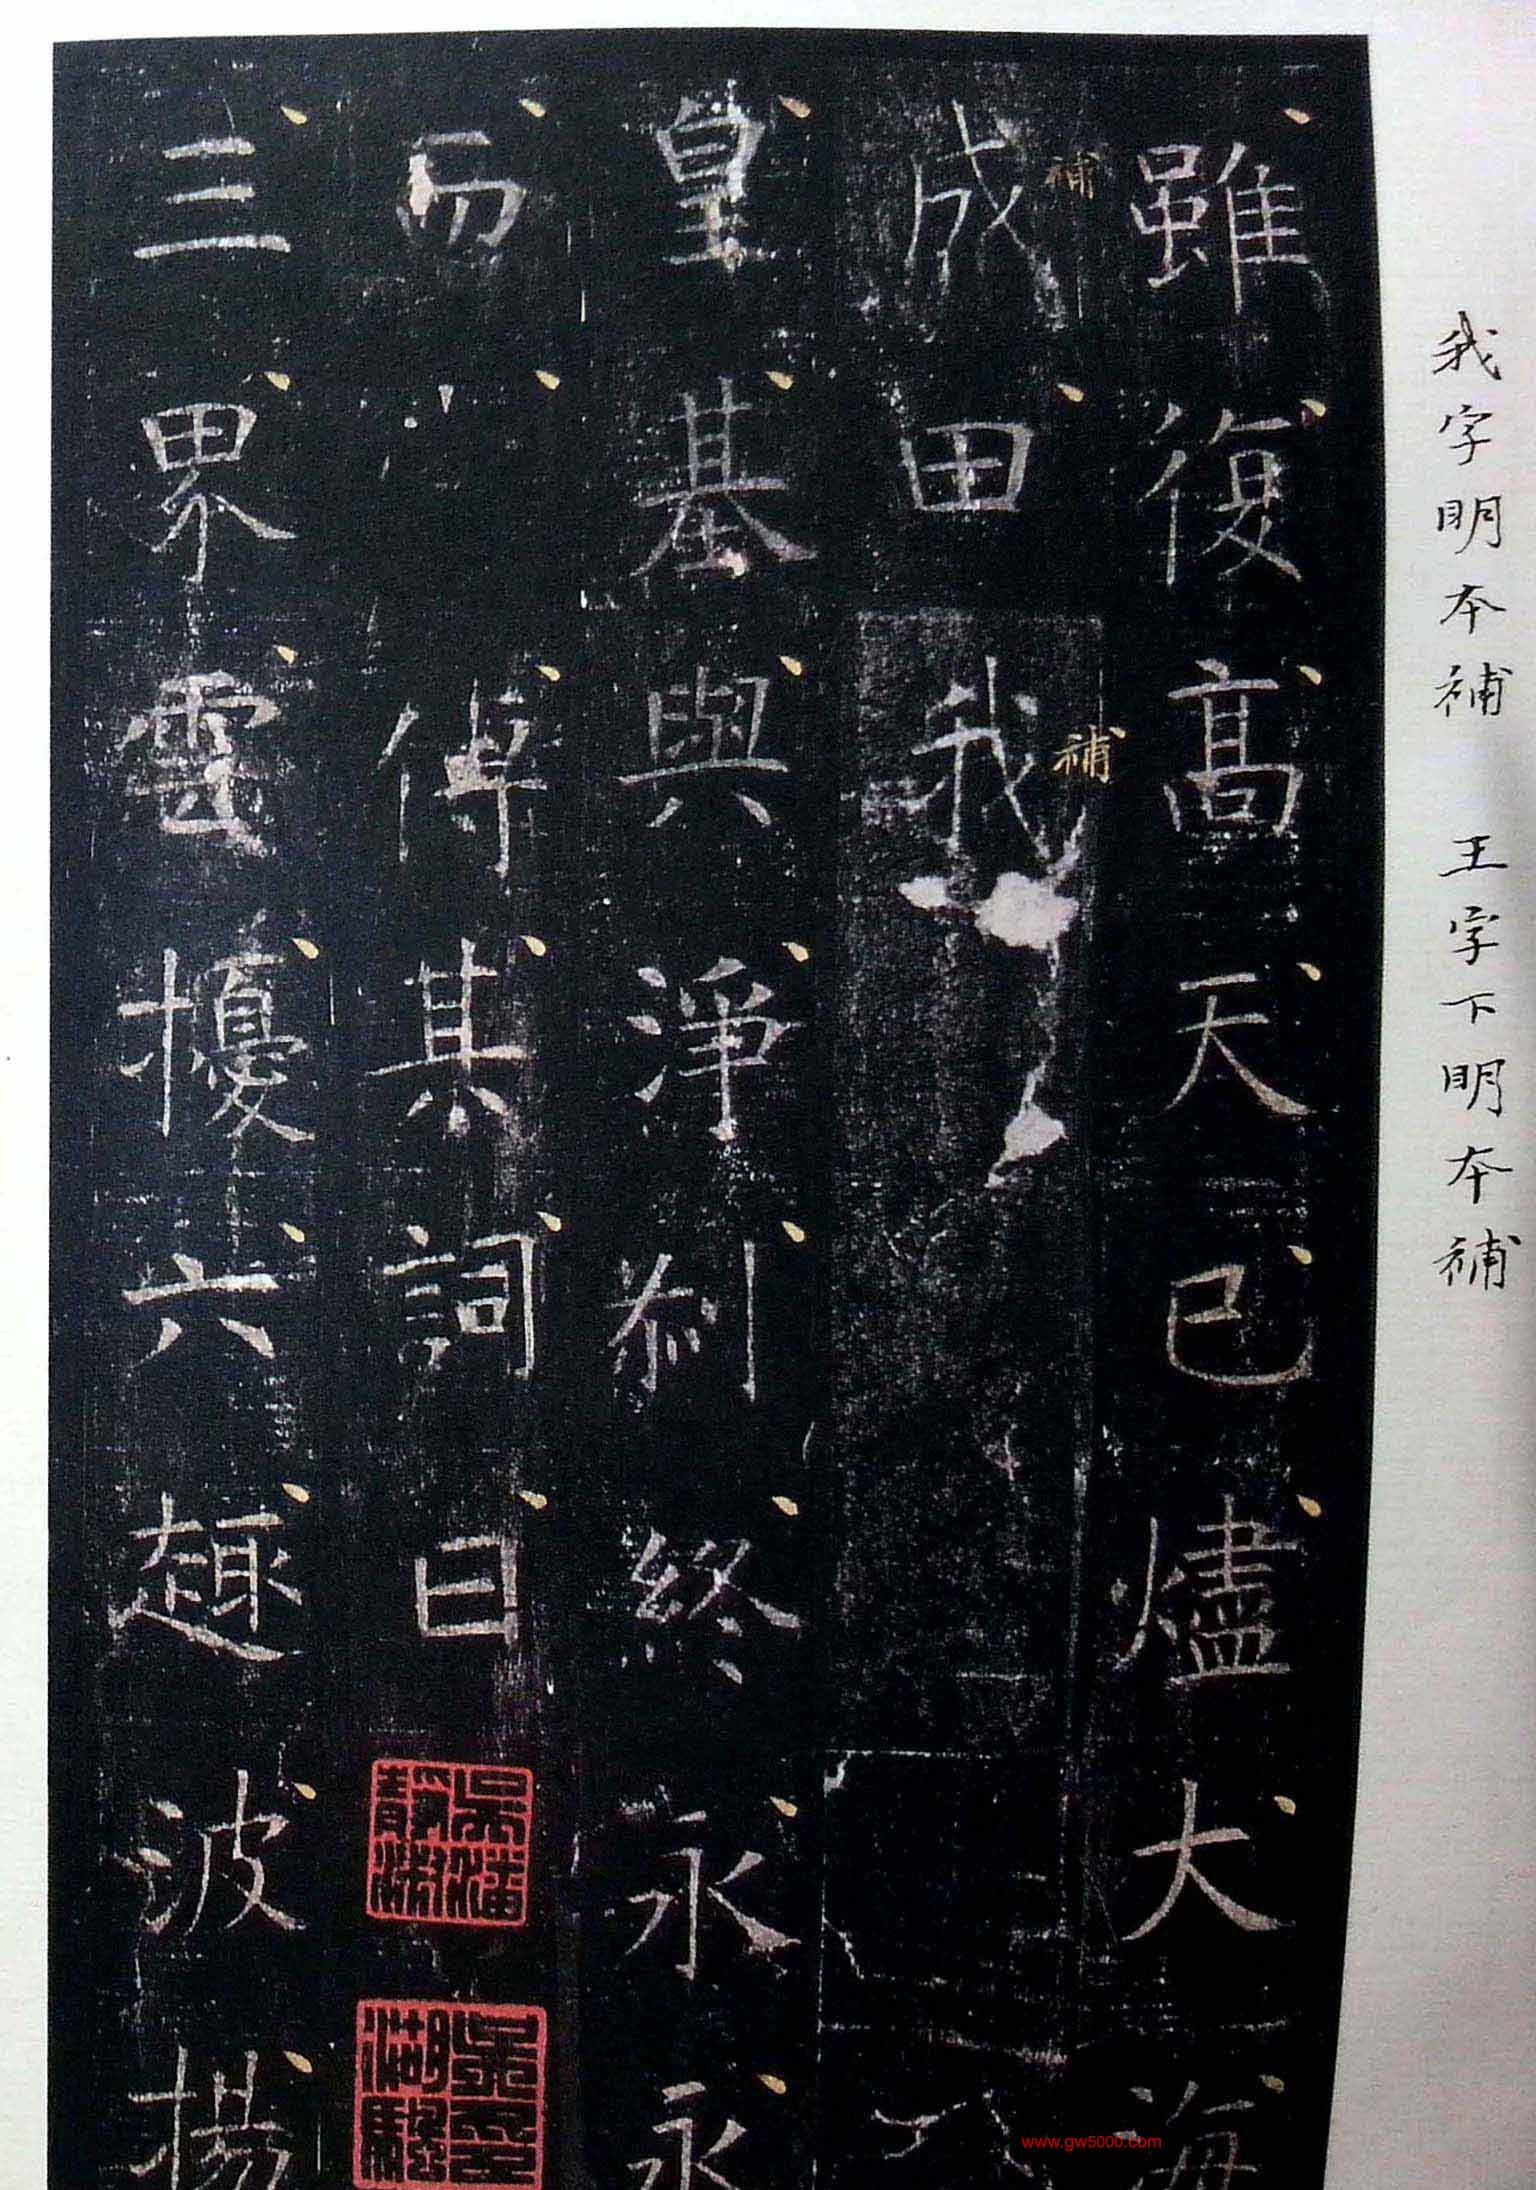 我字明本補 王字下明本補
雖復高天已燼大海
成田我
補
補
皇基與淨刹終永永
而傳其詞曰
三界雲擾六趣波揚
www.gw5000.com